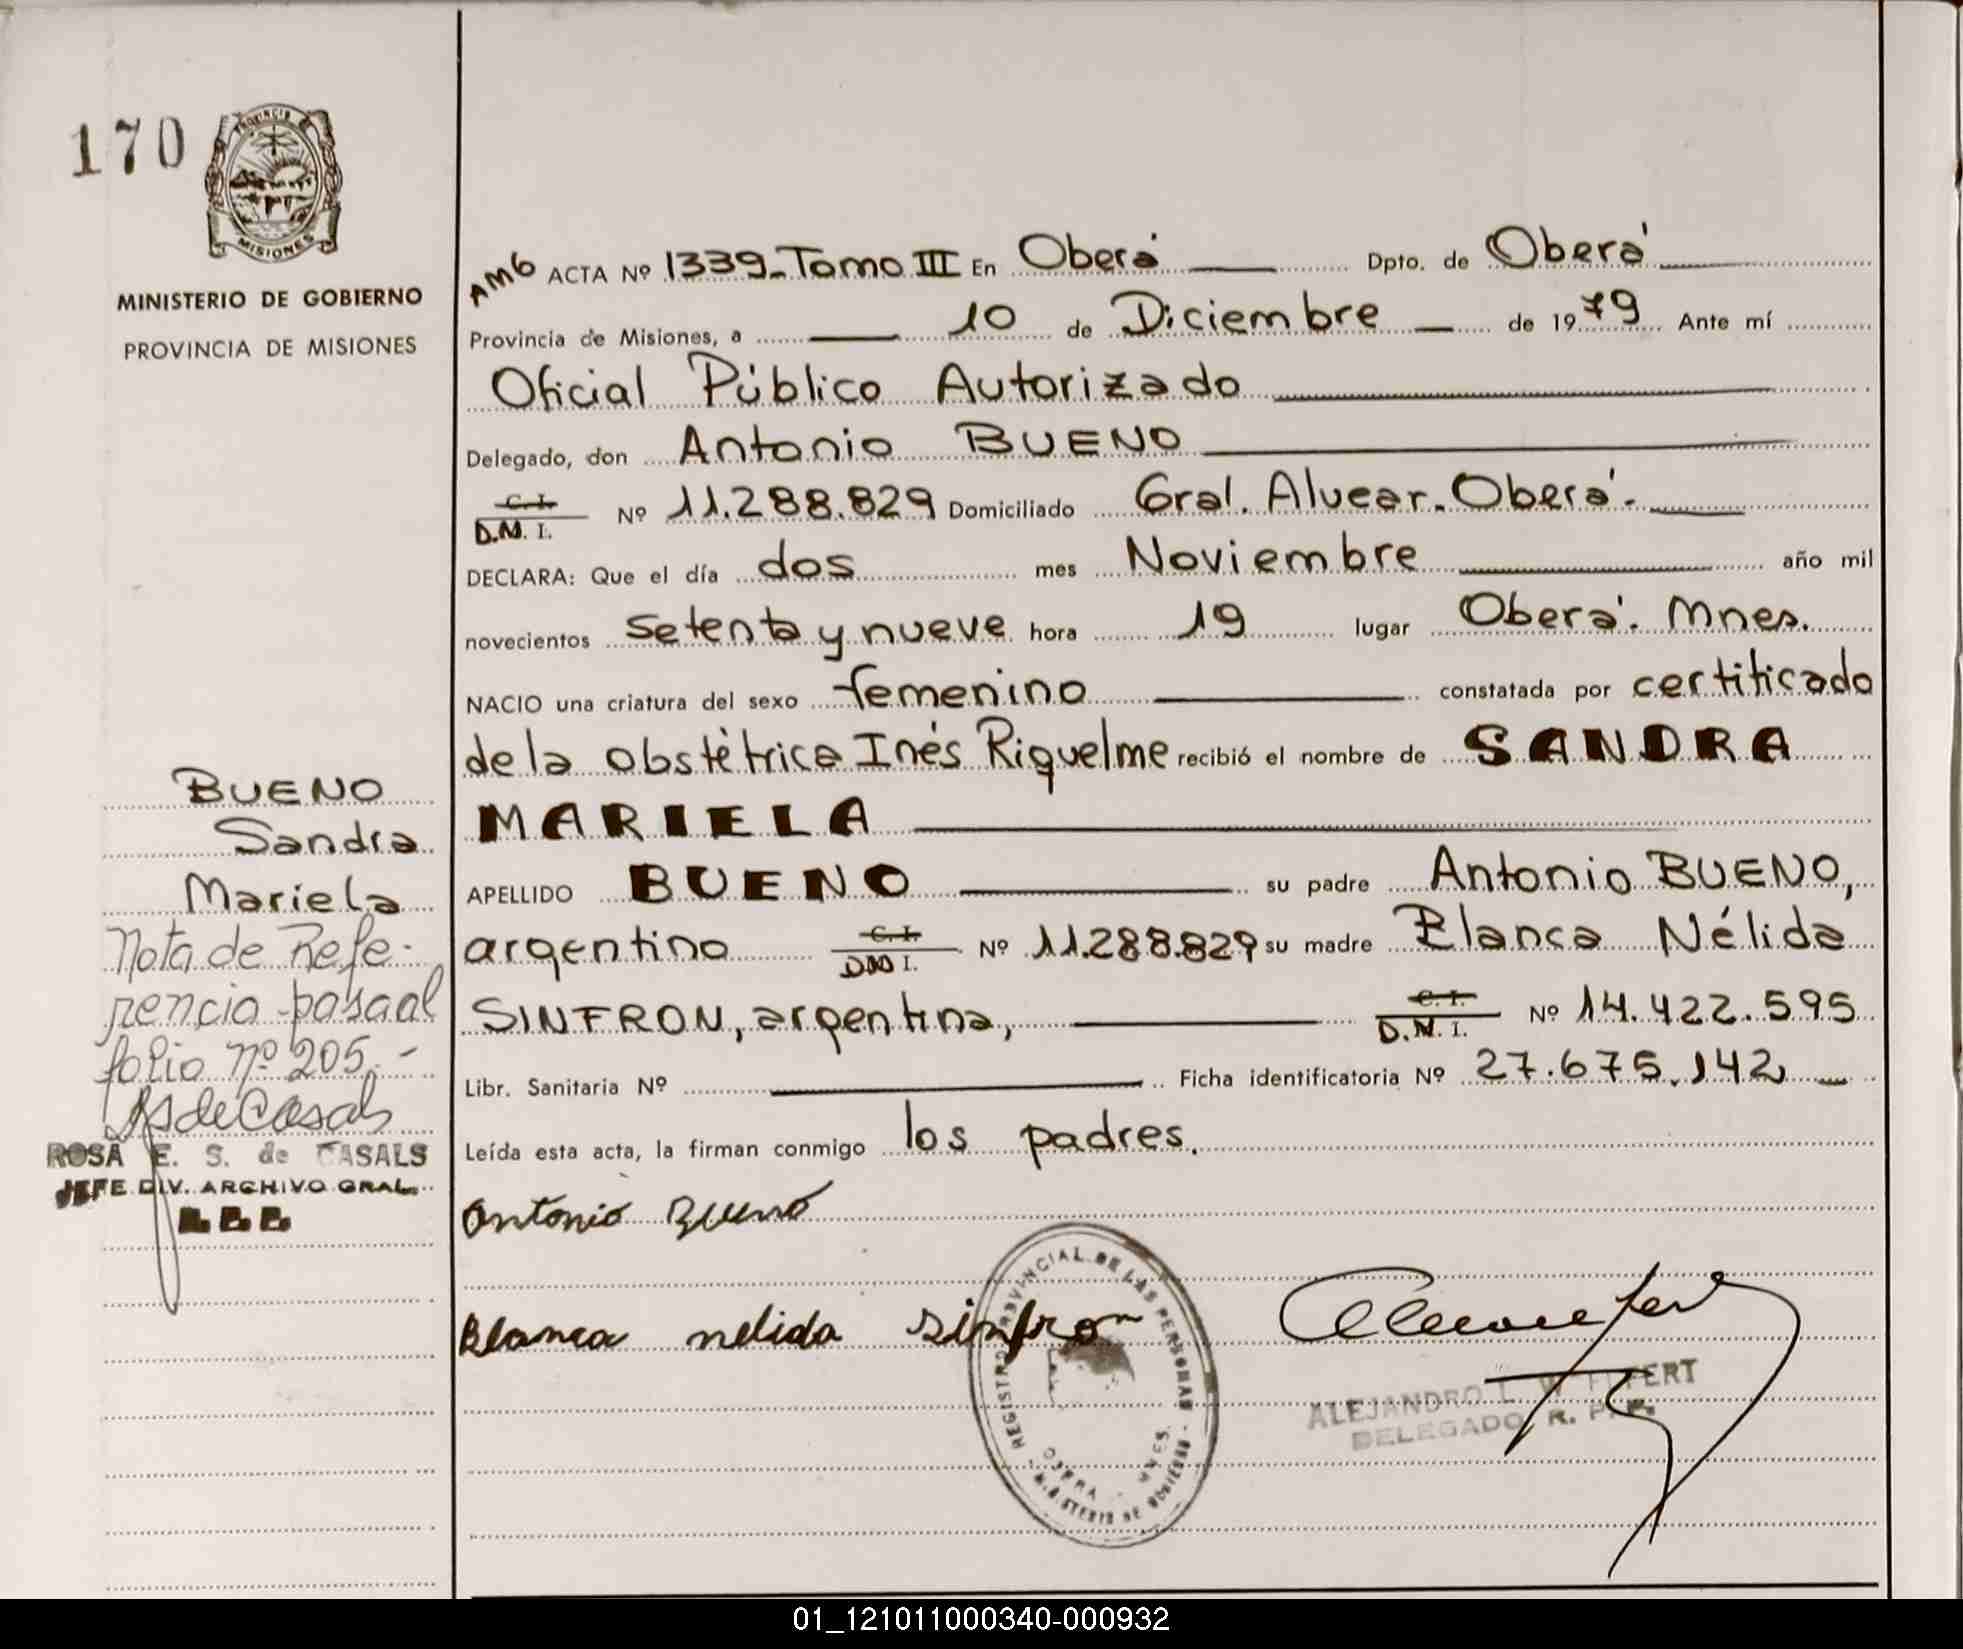 170
PROVINCIA DE
MISIONES
MINISTERIO DE GOBIERNO
PROVINCIA DE MISIONES
AMB ACTA Nº 1339-Tomo III En Oberá Dpto. de Oberá
Provincia de Misiones, a 10 de Diciembre de 1979 Ante mí
Oficial Público Autorizado
Delegado, don Antonio BUENO
C. I.
D.N. I. Nº 11.288.829 Domiciliado Gral. Alvear. Oberá.
DECLARA: Que el día dos mes Noviembre año mil
novecientos setenta y nueve hora 19 lugar Oberá. Mnes.
NACIO una criatura del sexo femenino constatada por certificado
de la obstétrica Inés Riquelme recibió el nombre de SANDRA
MARIELA
APELLIDO BUENO su padre Antonio BUENO,
argentino C. I.
DNI. Nº 11.288.829 su madre Blanca Nélida
SINFRON, argentina, C. I.
D.N. I. Nº 14.422.595
Libr. Sanitaria Nº Ficha identificatoria Nº 27.675.142
Leída esta acta, la firman conmigo los padres.
Antonio Bueno
Blanca nelida sinfron
BUENO
Sandra
Mariela
Nota de Refe-
rencia pasa al
folio nº 205.-
ROSA E. S. de CASALS
JEFE DIV. ARCHIVO GRAL.
REGISTRO PROVINCIAL DE LAS PERSONAS
OBERA - MNES.
MINISTERIO DE GOBIERNO
ALEJANDRO L. W
DELEGADO R. P. P.
01_121011000340-000932